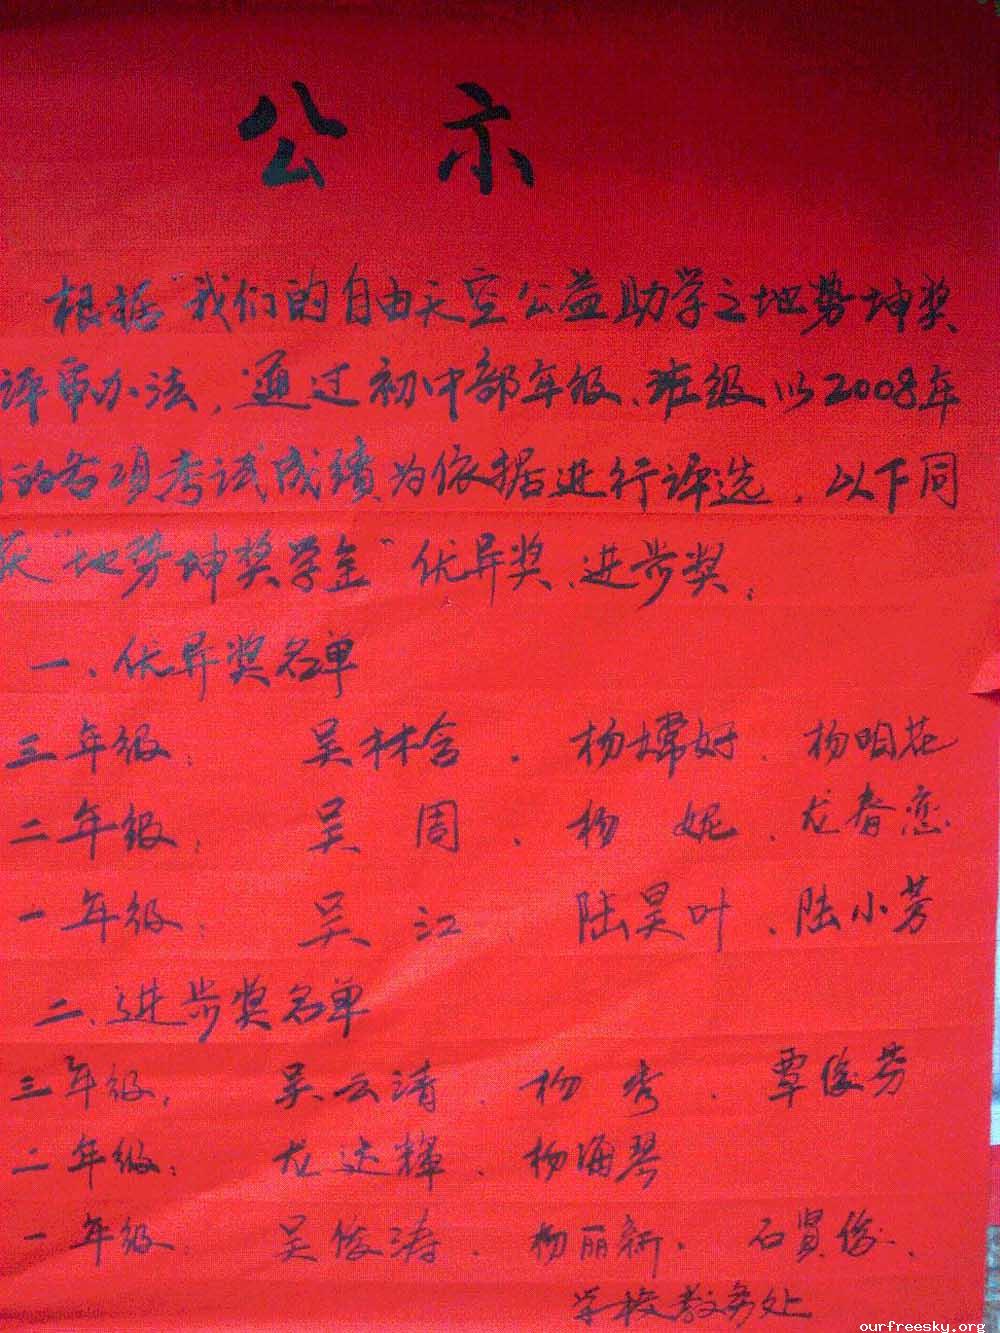 公示
根据"我们的自由天空公益助学之地势坤奖
评审办法，通过初中部年级、班级以2008年
的各项考试成绩为依据进行评选，以下同
获"地势坤奖学金"优异奖、进步奖：
一、优异奖名单
三年级： 吴林含、杨嫦好、杨明花
二年级： 吴周、杨妮、龙春恋
一年级： 吴江、陆昊叶、陆小芳
二、进步奖名单
三年级： 吴云清、杨秀、覃俊芳
二年级： 龙达辉、杨海琴
一年级： 吴俊涛、杨丽新、石贤俊、
学校教务处
ourfreesky.org